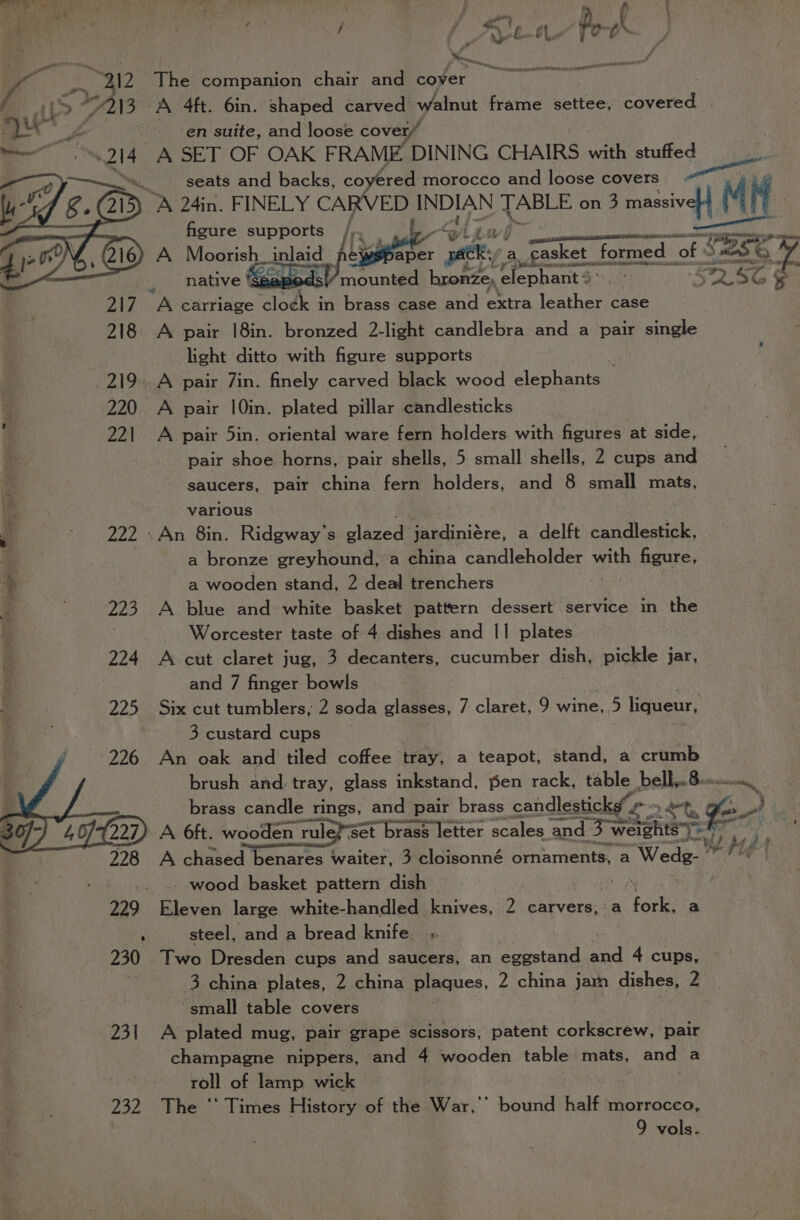 212 The companion chair and cover
213 A 4ft. 6in. shaped carved walnut frame settee, covered
en suite, and loose cover
214 A SET OF OAK FRAME DINING CHAIRS with stuffed
seats and backs, covered morocco and loose covers
215 A 24in. FINELY CARVED INDIAN TABLE on 3 massive
figure supports
216 A Moorish inlaid newspaper pack; a casket formed of
native Seapods mounted bronze, elephant
217 A carriage clock in brass case and extra leather case
218 A pair 18in. bronzed 2-light candlebra and a pair single
light ditto with figure supports
219 A pair 7in. finely carved black wood elephants
220 A pair 10in. plated pillar candlesticks
221 A pair 5in. oriental ware fern holders with figures at side,
pair shoe horns, pair shells, 5 small shells, 2 cups and
saucers, pair china fern holders, and 8 small mats,
various
222 An 8in. Ridgway's glazed jardiniére, a delft candlestick,
a bronze greyhound, a china candleholder with figure,
a wooden stand, 2 deal trenchers
223 A blue and white basket pattern dessert service in the
Worcester taste of 4 dishes and 11 plates
224 A cut claret jug, 3 decanters, cucumber dish, pickle jar,
and 7 finger bowls
225 Six cut tumblers, 2 soda glasses, 7 claret, 9 wine, 5 liqueur,
3 custard cups
226 An oak and tiled coffee tray, a teapot, stand, a crumb
brush and tray, glass inkstand, pen rack, table bell, 8
brass candle rings, and pair brass candlesticks
227 A 6ft. wooden rule, set brass letter scales and 3 weights
228 A chased benares waiter, 3 cloisonné ornaments, a Wedg-
wood basket pattern dish
229 Eleven large white-handled knives, 2 carvers, a fork, a
steel, and a bread knife
230 Two Dresden cups and saucers, an eggstand and 4 cups,
3 china plates, 2 china plaques, 2 china jam dishes, 2
small table covers
231 A plated mug, pair grape scissors, patent corkscrew, pair
champagne nippers, and 4 wooden table mats, and a
roll of lamp wick
232 The "Times History of the War," bound half morrocco,
9 vols.